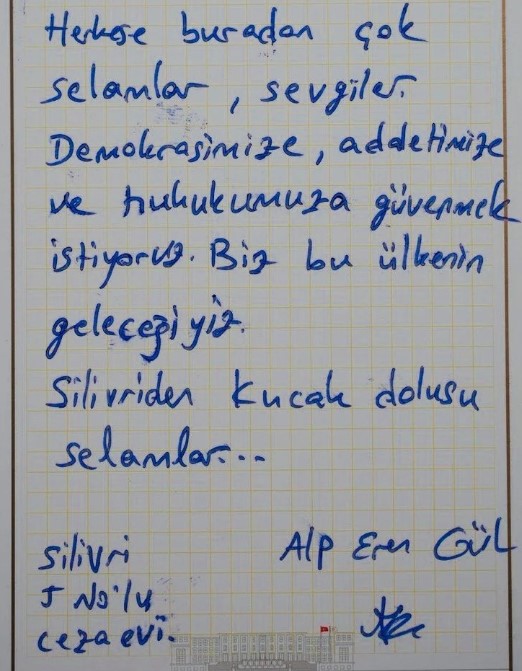 Herkese buradan çok
selamlar, sevgiler.
Demokrasimize, addetimize
ve hukukumuza güvenmek
istiyoruz. Biz bu ülkenin
geleceğiyiz.
Silivriden kucak dolusu
selamlar...
Silivri
5 No'lu
cezaevi.
Alp Eren GÜL